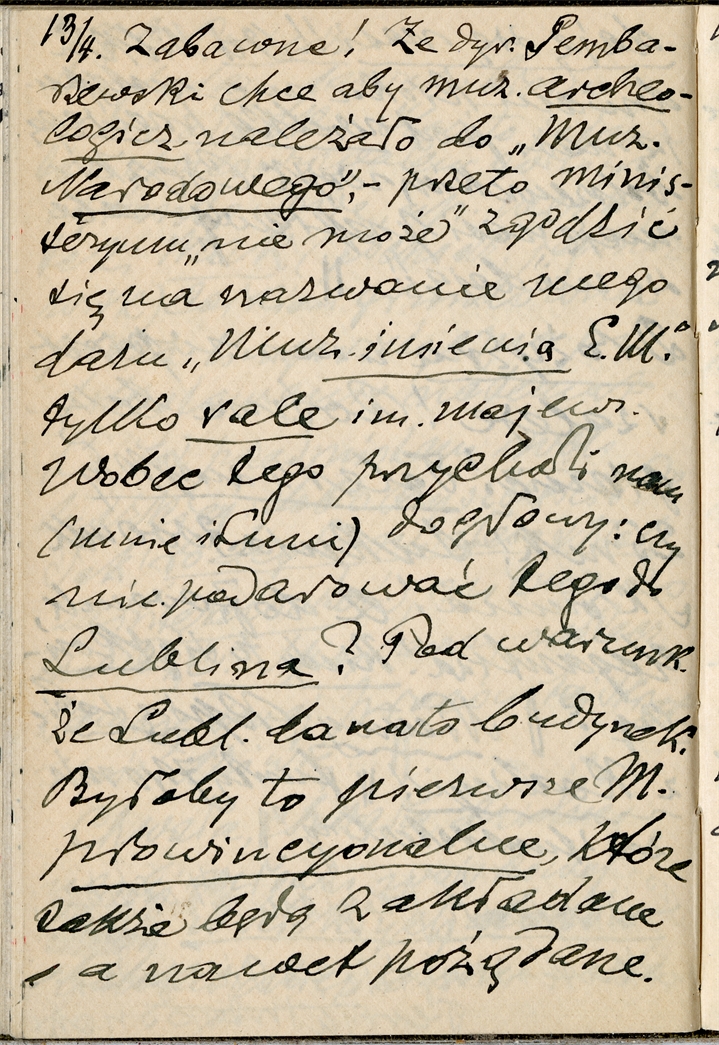 13/4. Zabawne! Że dyr. Pemba-
rzewski chce aby muz. archeo-
logicz należało do „Muz.
Narodowego”,- przeto minis-
teryum „nie może” zgodzić
się na nazwanie mego
daru „Muz. imienia E. M.”
tylko sale im. majew.
Wobec tego przychodzi nam
(mnie i Luni) do głowy: czy
nie podarować tego do
Lublina? Pod warunk.
że Lubl. da na to budynek.
Byłoby to pierwsze M.
prowincyonalne, które
także będą zakładane
, a nawet pożądane.